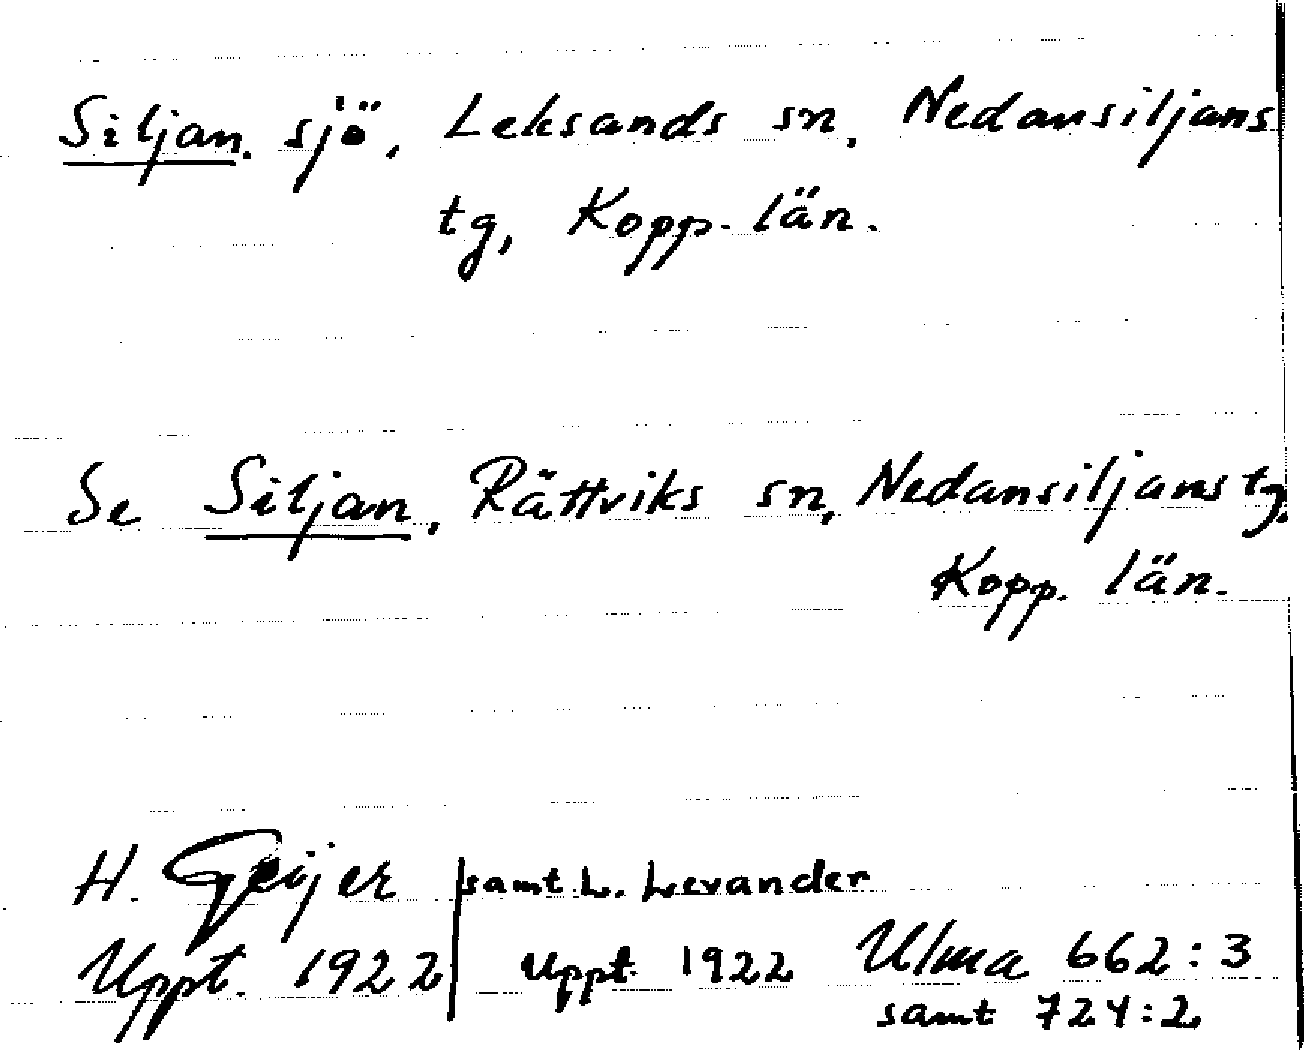 Siljan. sjö, Leksands sn, Nedansiljans
tg, Kopp. län.
Se Siljan, Rättviks sn, Nedansiljans tg.
Kopp. län.
H. Geijer samt L. Levander
Uppt. 1922 Uppt. 1922 Ulma 662:3
samt 724:2